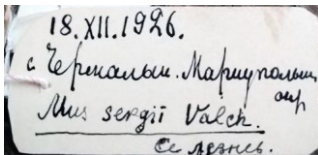 18.XII.1926.
с Чермалык. Мариупольщ
окр
Mus sergii Valch.
Селезнь.